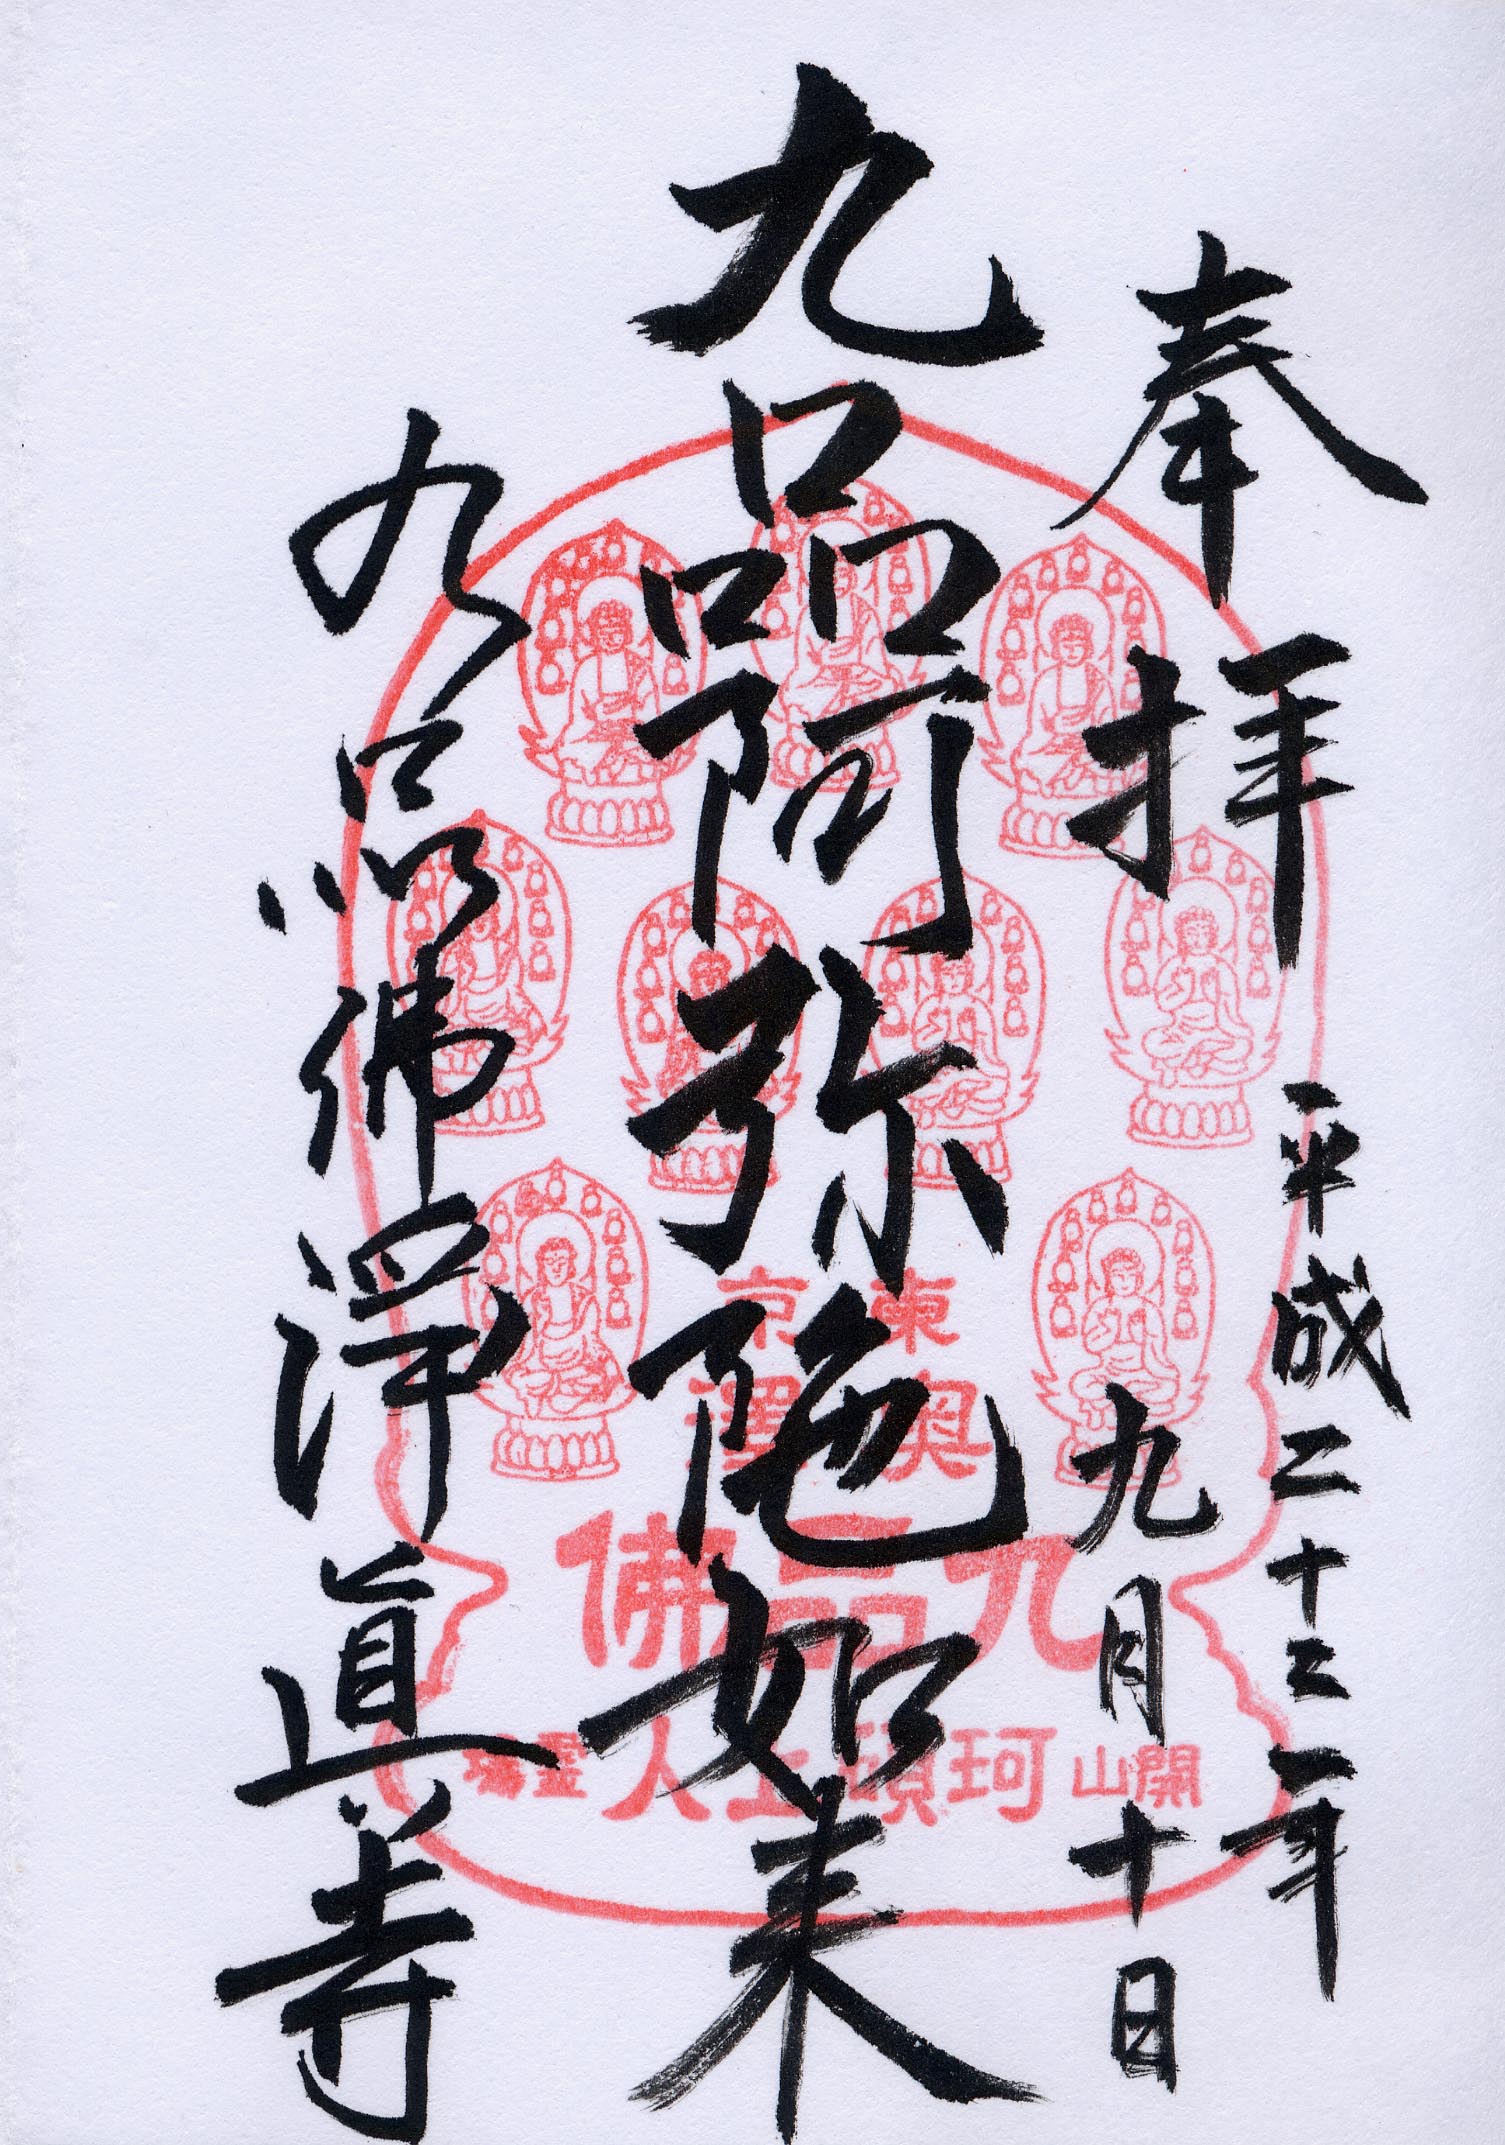 奉拝
平成二十二年
九月十日
九品阿弥陀如来
九品佛浄真寺
東京
奥澤
九品佛
開山珂碩上人霊場